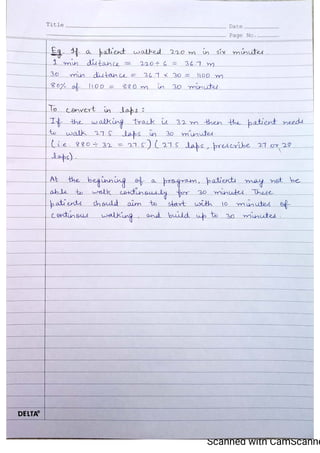 Title
Date
Page No.
Eg If a patient walked 220 m in six minutes
1 min distance = 220 ÷ 6 = 36.7 m
30 min distance = 36.7 x 30 = 1100 m
80% of 1100 = 880 m in 30 minutes
To convert in laps :
If the walking track is 32 m then the patient needs
to walk 27.5 laps in 30 minutes
(i.e 880 ÷ 32 = 27.5) (27.5 laps, prescribe 27 or 28
laps).
At the beginning of a program, patients may not be
able to walk continuously for 30 minutes. These
patients should aim to start with 10 minutes of
continous walking, and build up to 30 minutes.
DELTA®
Scanned with CamScanner